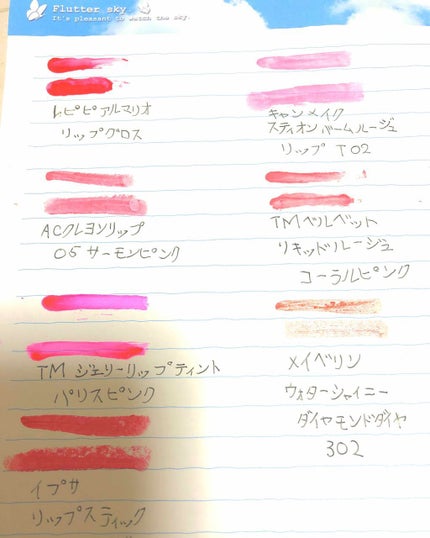 Flutter sky
It's pleasant to watch the sky.
レピピアルマリオ
リップグロス
キャンメイク
スティオンバームルージュ
リップ T02
ACクレヨンリップ
05 サーモンピンク
TMベルベット
リキッドルージュ
コーラルピンク
TM ジェリーリップティント
パリスピンク
メイベリン
ウォターシャイニー
ダイヤモンドダイヤ
302
イプサ
リップスティック